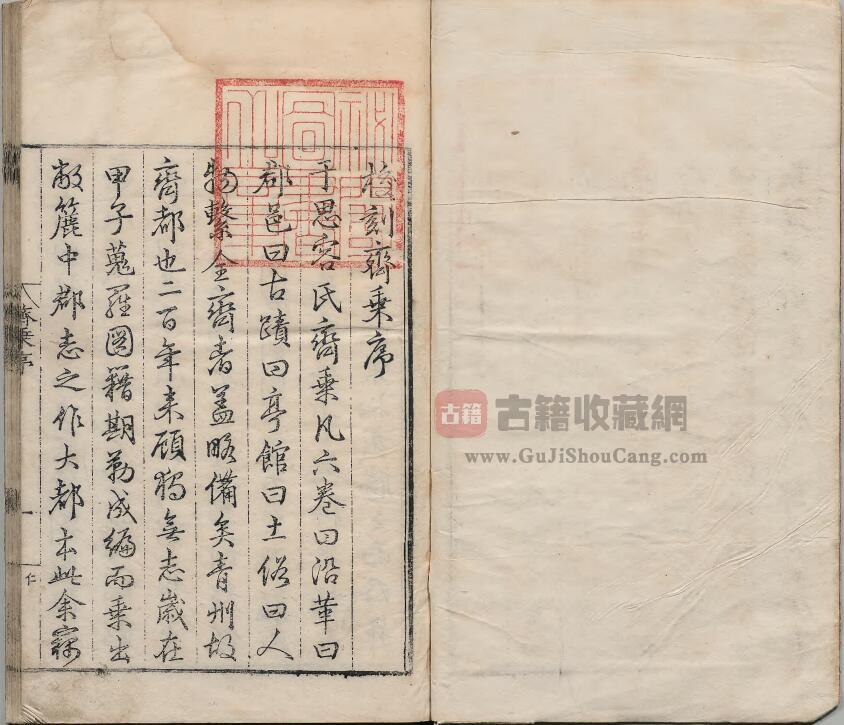 校刻齊乘序
于思容氏齊乘凡六卷曰沿革曰
郡邑曰古蹟曰亭館曰土俗曰人
物繫全齊者蓋略備矣青州故
齊都也二百年來顧獨無志歲在
甲子蒐羅圖籍期勒成編而乘出
敝簏中郡志之作大都本此余竊
齊乘序
一
仁
古籍
古籍收藏網
www.GuJiShouCang.com